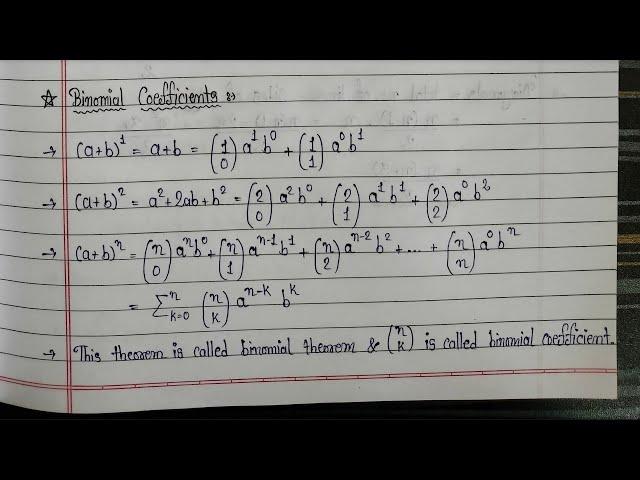 ☆ Binomial Coefficients :-
→ (a+b)^1 = a+b = (1 0) a^1 b^0 + (1 1) a^0 b^1
→ (a+b)^2 = a^2+2ab+b^2 = (2 0) a^2 b^0 + (2 1) a^1 b^1 + (2 2) a^0 b^2
→ (a+b)^n = (n 0) a^n b^0 + (n 1) a^{n-1} b^1 + (n 2) a^{n-2} b^2 + .... + (n n) a^0 b^n
= Σ_{k=0}^n (n k) a^{n-k} b^k
→ This theorem is called binomial theorem & (n k) is called binomial coefficient.